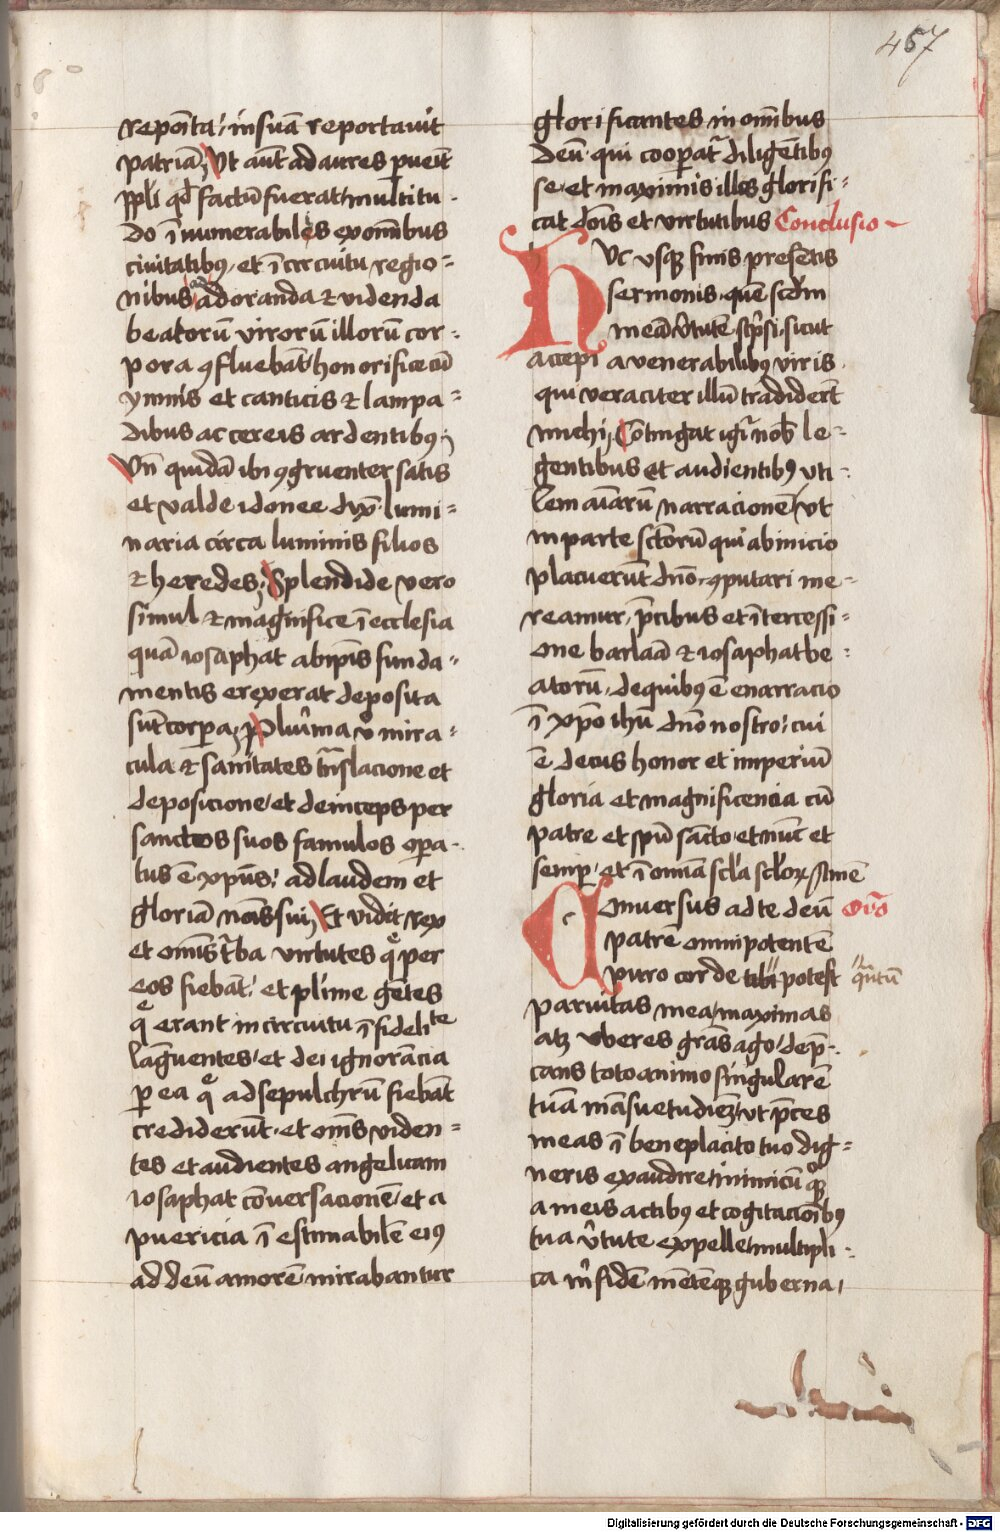 457
repoſita / in suā reportauit
patriā, Ut aūt ad aures pueīt
ppli qd factū fuerat / multitu-
do īnumerabiles ex omībus
ciuitatibꝰ, et ī circuitu regio-
nibus ad adoranda & videnda
beatorū virorū illorū cor-
pora ꝯfluebāt honorifice cū
ymnis et canticis & lampa-
dibus ac cereis ardentibꝰ,
Vn̄ quidā ibi ꝯgruenter satis
et valde idonee dix̄ lumi-
naria circa luminis filios
& heredes, Splendide vero
simul & magnifice ī ecclesia
quā iosaphat ab ip̄is funda-
mentis erexerat deposita
sūt corꝑa, Plurīma v̊ mira-
cula & sanitates trāslacione et
deposicione / et deinceps per
sanctos suos famulos oꝑa-
tus ē xp̄us: ad laudem et
gloriā nōis sui, Et vidit rex
et omīs t̄ba virtutes q̄ per
eos fiebāt: et pl̄ime gētes
q̄ erant in circuitu īfidelite
lāguentes / et dei ignorācia
ꝑ ea q̄ ad sepulchrū fiebāt
crediderūt. et om̄s viden-
tes et audientes angelicam
iosaphat cōuersacionē / et a
puericia ī estimabilē eiꝰ
ad deū amorē mirabantur
glorificantes in omībus
deū. qui cooꝑat̄ diligētibꝰ
se. et maximis illos glorifi-
cat dōis et virtutibus Conclusio
HUc vsqꝫ finis presētis
sermonis. quē scd̄m
meā v̄tutē sc̄psi. sicut
accepi a venerabilibꝰ viris.
qui veraciter illū tradiderūt
michi, Cōtingat igr̄ nob̄ le-
gentibus et audientibꝰ vti-
lem aīarū narracionē / vt
in parte sc̄torū qui ab inicio
placuerūt dn̄o. ꝯputari me-
reamur, p̄cibus et ītercessi-
one barlaā & iosaphat be-
atorū. de quibꝰ ē enarracio
ī xp̄o ihū dn̄o nostro: cui
ē decus honor et imperiū
gloria et magnificencia cū
patre et sp̄u sancto et nūc et
semꝑ. et ī omīa sc̄la sc̄lorꝫ Amē
COnuersus ad te deū Orō
patrē omnipotentē
puro corde tibi potest q̄ntū
paruitas mea / maximas
atqꝫ vberes grās ago / dep̄-
cans toto animo singularē
tuā māsuetudiēꝫ, vt p̄ces
meas ī beneplacito tuo dig-
neris exaudire / inimicū qꝫ
a meis actibꝰ et cogitacōibꝰ
tua v̄tute expelle / multipli-
ca m̄ fidē mētēqꝫ guberna,
Digitalisierung gefördert durch die Deutsche Forschungsgemeinschaft - DFG